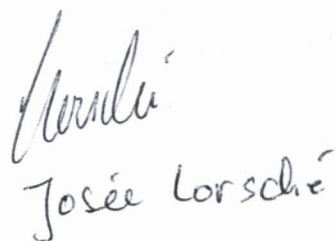 Josée Lorsché